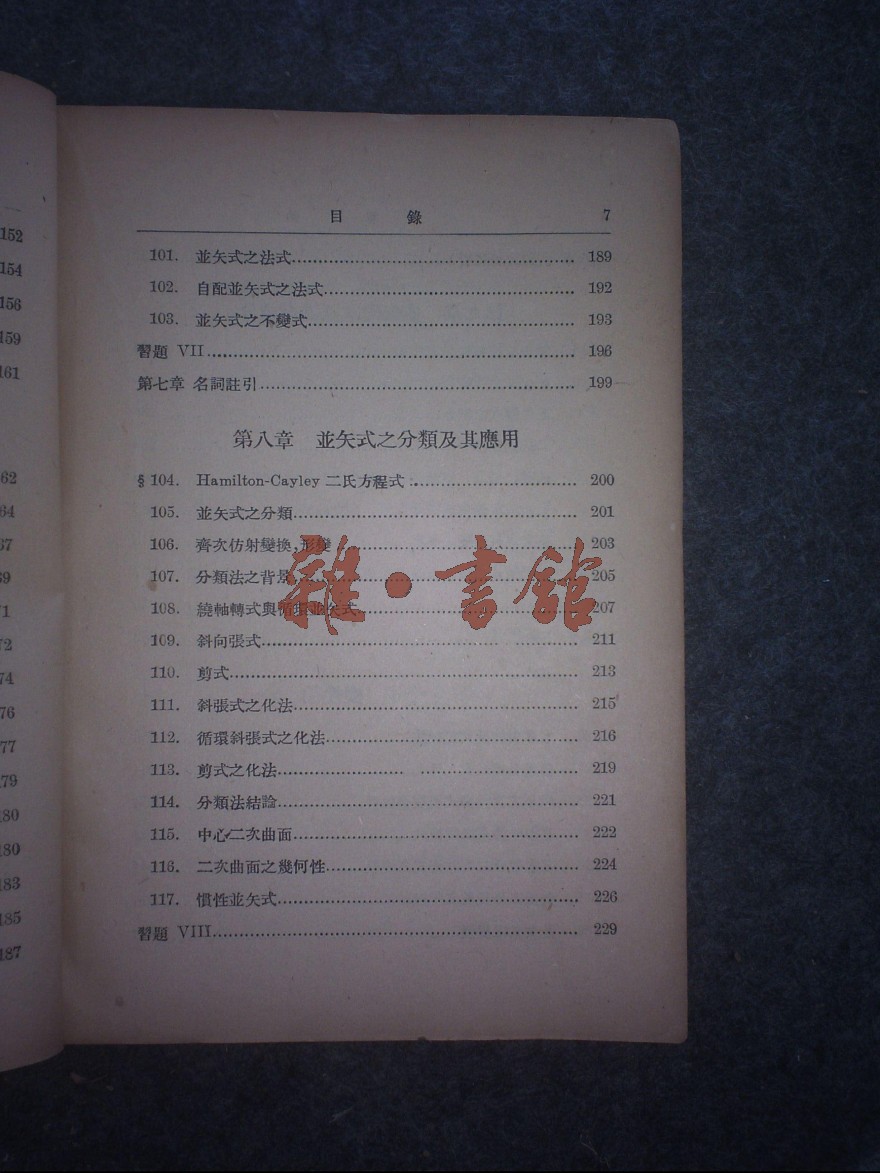 152
154
156
159
161
62
64
67
69
71
72
74
76
77
79
180
180
183
185
187
目 錄 7
101. 並矢式之法式 189
102. 自配並矢式之法式 192
103. 並矢式之不變式 193
習題 VII 196
第七章 名詞註引 199
第八章 並矢式之分類及其應用
§ 104. Hamilton-Cayley 二氏方程式 200
105. 並矢式之分類 201
106. 齊次仿射變換,形變 203
107. 分類法之背景 205
108. 繞軸轉式與循環並矢式 207
109. 斜向張式 211
110. 剪式 213
111. 斜張式之化法 215
112. 循環斜張式之化法 216
113. 剪式之化法 219
114. 分類法結論 221
115. 中心二次曲面 222
116. 二次曲面之幾何性 224
117. 慣性並矢式 226
習題 VIII 229
雜·書館